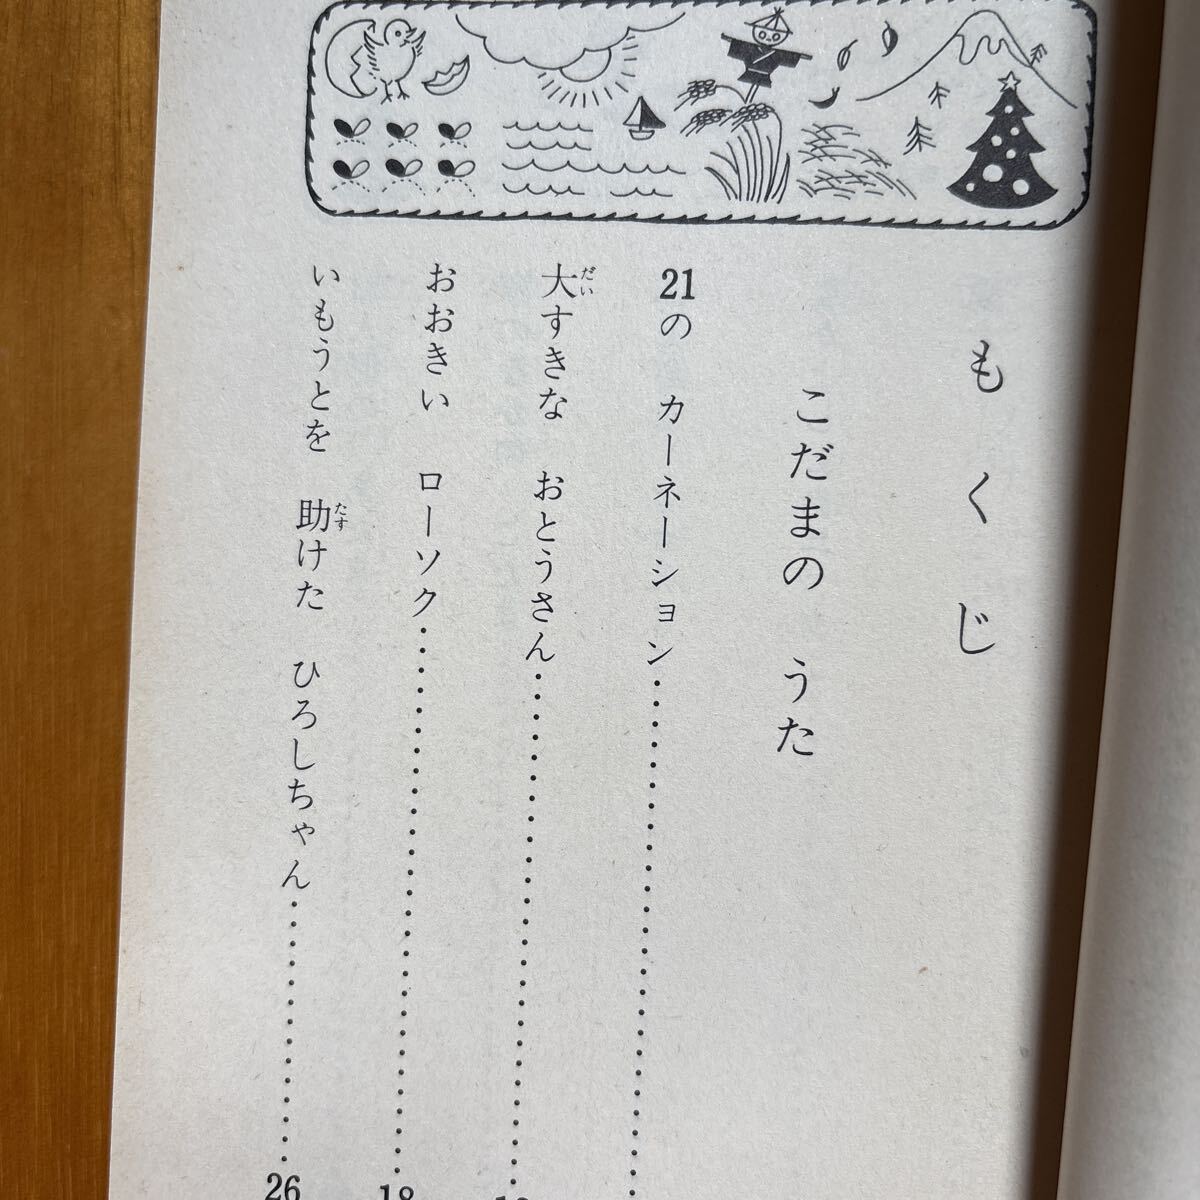 もくじ
こだまの うた
21の カーネーション
大すきな おとうさん
おおきい ローソク 18
いもうとを 助けた ひろしちゃん 26
だい
たす